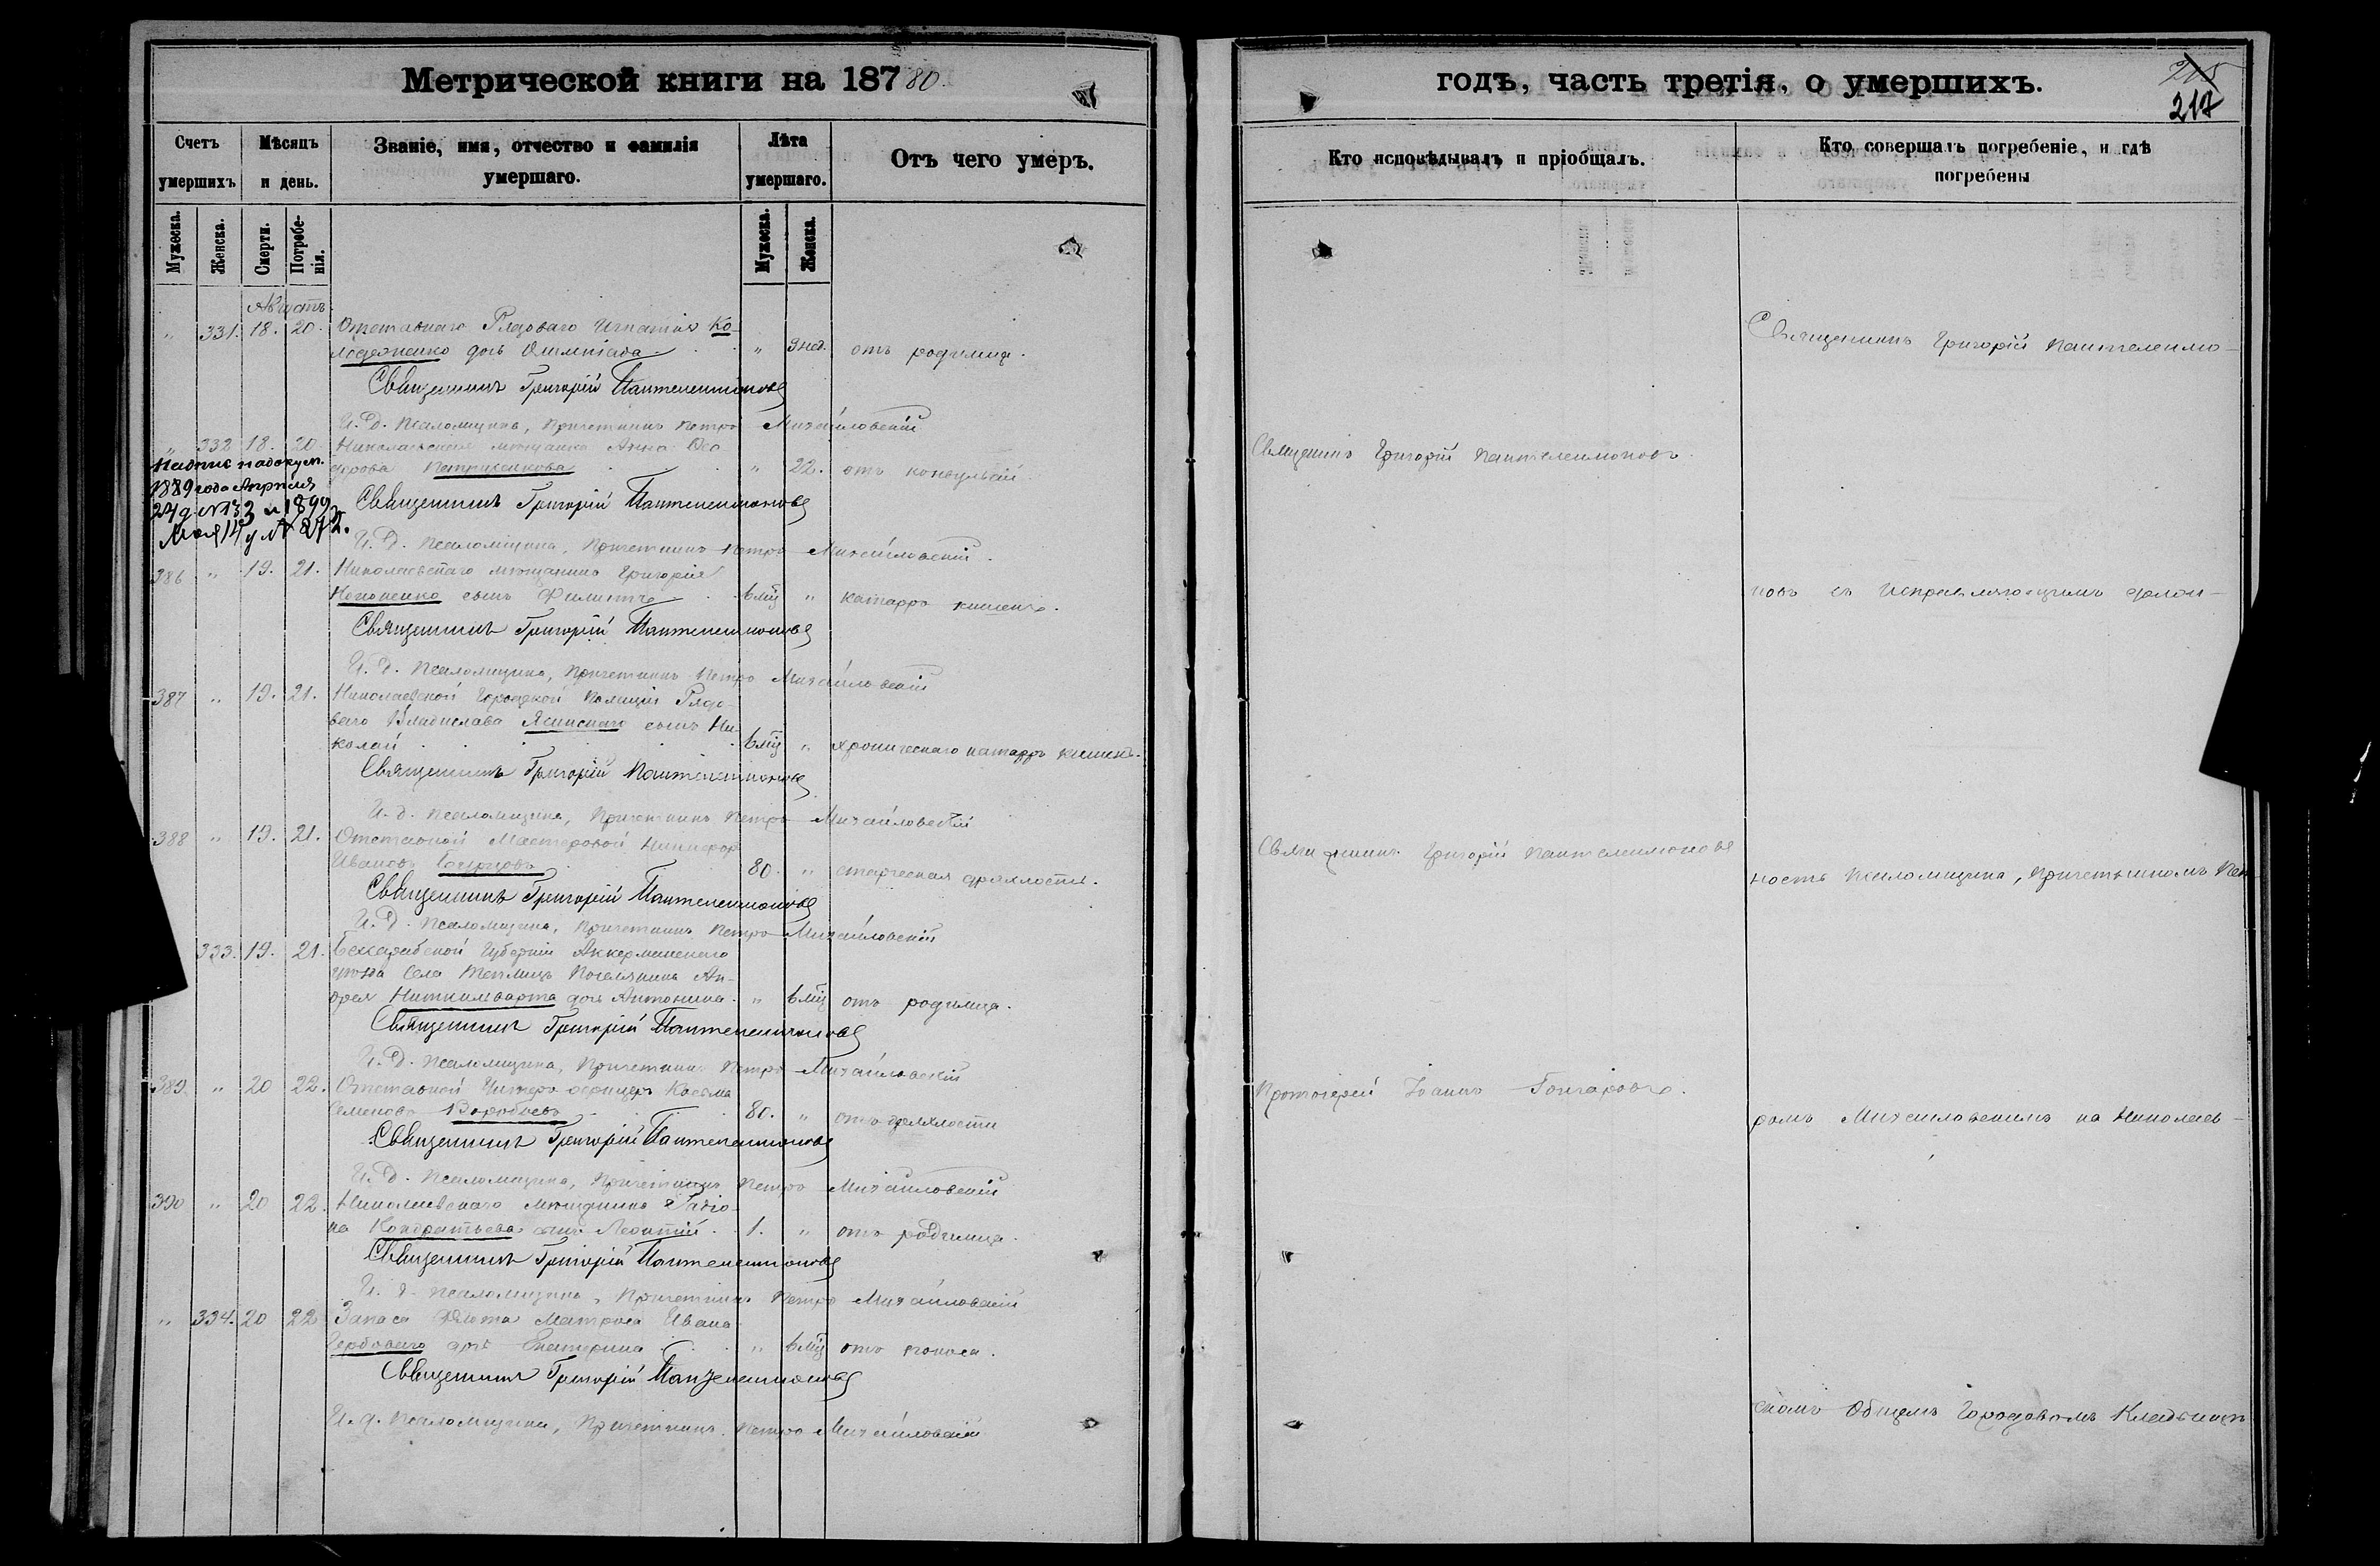 Метрической книги на 18780.
Счетъ умершихъ
Мѣсяцъ и день.
Званіе, имя, отчество и фамилія умершаго.
Лѣта умершаго.
Отъ чего умеръ.
Мужеска.
Женска.
Смерти.
Погребенія.
Мужеска.
Женска.
Августъ
" 331. 18. 20. Отставнаго Рядоваго Игнатія Ко-
лодяженко дочь Олимпіада " 9 нед. отъ родимца.
Священникъ Григорій Пантелеимоновъ
И. Д. Псаломщика, Причетникъ Петръ Михайловскій
" 332 18. 20. Николаевская мѣщанка Анна Ѳео
дорова " 22. отъ
Священникъ Григорій Пантелеимоновъ
1889 года Апрѣля
24 д. №133 и 1899
Мая 14 д №872.
И. Д. Псаломщика, Причетникъ Петръ Михайловскій.
386 " 19. 21. Николаевскаго мѣщанина Григорія
Кононенко сынъ Филиппъ 6 мц " катарръ кишекъ.
Священникъ Григорій Пантелеимоновъ
И. Д. Псаломщика, Причетникъ Петръ Михайловскій
387 " 19. 21. Николаевской Городской Полиціи Рядо-
ваго Владислава Ясинскаго сынъ Ни-
колай 6 мц " хроническаго катарръ кишекъ.
Священникъ Григорій Пантелеимоновъ
И. д. Псаломщика, Причетникъ Петръ Михайловскій
388 " 19. 21. Отставной Мастеровой Никифоръ
Ивановъ 80. " старческая дряхлость.
Священникъ Григорій Пантелеимоновъ
И. Д. Псаломщика, Причетникъ Петръ Михайловскій
333. 19. 21. Бессарабской Губерніи Аккерманскаго
уѣзда Села Теплицъ Поселянина Ан-
дрея дочь Антонина " 6 мц отъ родимца.
Священникъ Григорій Пантелеимоновъ
И. Д. Псаломщика, Причетникъ Петръ Михайловскій
389. " 20 22. Отставной Унтеръ офицеръ Косьма
Семеновъ Воробьевъ 80. " отъ дряхлости
Священникъ Григорій Пантелеимоновъ
И. Д. Псаломщика, Причетникъ Петръ Михайловскій
390 " 20 22. Николаевскаго мѣщанина Родіо-
на Кондратьева сынъ Леонтій 1. " отъ родимца.
Священникъ Григорій Пантелеимоновъ
И. д. Псаломщика, Причетникъ Петръ Михайловскій
" 334. 20 22 Запаса Флота Матроса Ивана
дочь Екатерина " 6 мц отъ поноса.
Священникъ Григорій Пантелеимоновъ
И. д. Псаломщика, Причетникъ Петръ Михайловскій
годъ, часть третія, о умершихъ.
215
217
Кто исповѣдывалъ и пріобщалъ.
Кто совершалъ погребеніе, и гдѣ погребены
Священникъ Григорій Пантелеимоновъ.
Священникъ Григорій Пантелеимоновъ
Протоіерей Іоаннъ Гончаровъ.
Священникъ Григорій Пантелеимо-
новъ съ Исправляющимъ долж-
ность Псаломщика, Причетникомъ Пет
ромъ Михайловскимъ на Николаев-
скомъ Общемъ Городовомъ Кладбищѣ